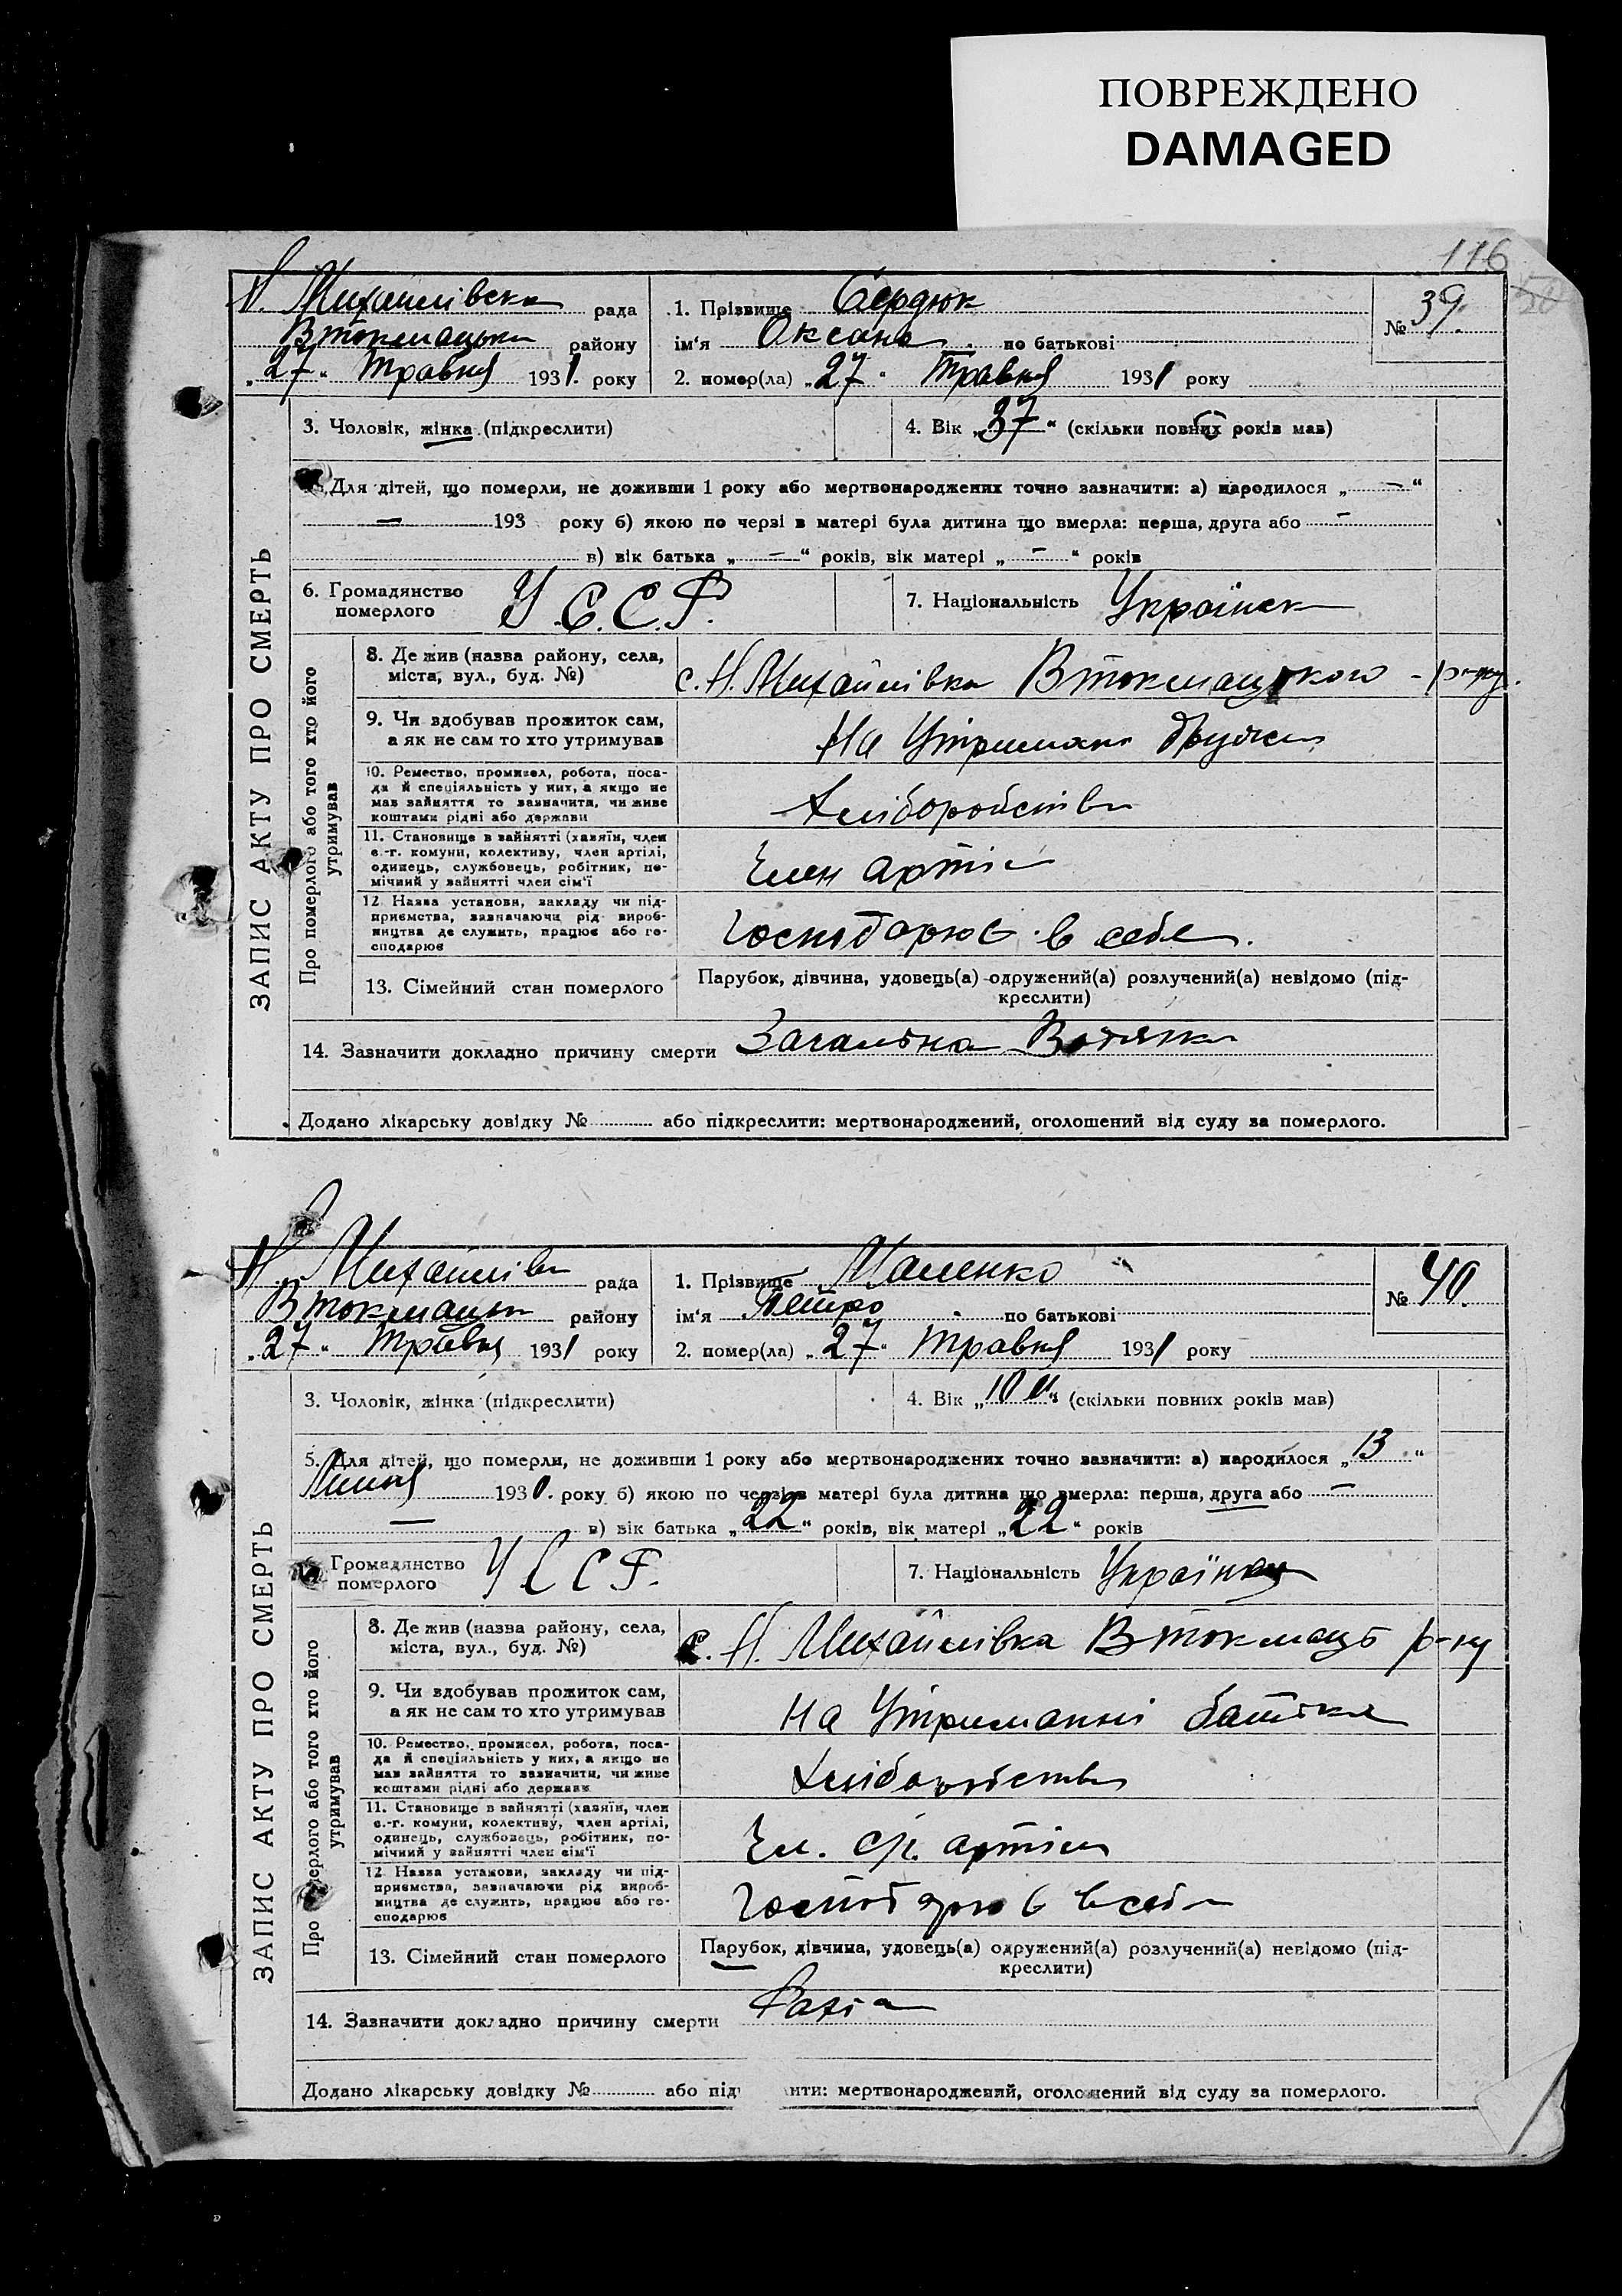 ПОВРЕЖДЕНО
DAMAGED
116
50
Н. Михайлівська рада
ВТокмацьки району
„27“ Травня 1931. року
1. Прізвище Сердюк
ім‘я Оксана по батькові
2. помер(ла) „27“ Травня 1931 року
№ 39.
ЗАПИС АКТУ ПРО СМЕРТЬ
3. Чоловік, жінка (підкреслити)
4. Вік „37“ (скільки повних років мав)
Для дітей, що померли, не доживши 1 року або мертвонароджених точно зазначити: а) народилося „—“
— 193 року б) якою по черзі в матері була дитина що вмерла: перша, друга або —
в) вік батька „—“ років, вік матері „—“ років
6. Громадянство
померлого
У.С.С.Р.
7. Національність
Про померлого або того хто його
утримував
8. Де жив (назва району, села,
міста, вул., буд. №)
с. Н. Михайлівка ВТокмацького - р-ну.
9. Чи здобував прожиток сам,
а як не сам то хто утримував
На Утриман
10. Ремество, промисел, робота, поса-
да й спеціяльність у них, а якщо не
мав зайняття то зазначити, чи живе
коштами рідні або держави
Хліборобство
11. Становище в зайнятті (хазяїн, член
с.-г. комуни, колективу, член артілі,
одинець, службовець, робітник, по-
мічний у зайнятті член сім‘ї
Член артіл
12 Назва установи, закладу чи під-
приємства, зазначаючи рід вироб-
ництва де служить, працює або го-
сподарює
Господарює в себе.
13. Сімейний стан померлого
Парубок, дівчина, удовець(а) одружений(а) розлучений(а) невідомо (під-
креслити)
14. Зазначити докладно причину смерти Загальна
Додано лікарську довідку № або підкреслити: мертвонароджений, оголошений від суду за померлого.
Н. Михайлівн рада
ВТокмацьк району
„27“ Травня 1931 року
1. Прізвище Маленко
ім‘я Петро по батькові
2. помер(ла) „27“ Травня 1931 року
№ 40.
ЗАПИС АКТУ ПРО СМЕРТЬ
3. Чоловік, жінка (підкреслити)
4. Вік „10 м.“ (скільки повних років мав)
5. Для дітей, що померли, не доживши 1 року або мертвонароджених точно зазначити: а) народилося „13“
Липня 1930. року б) якою по черзі в матері була дитина що вмерла: перша, друга або —
— в) вік батька „22“ років, вік матері „22“ років
Громадянство
померлого
У С С Р.
7. Національність Українец
Про померлого або того хто його
утримував
8. Де жив (назва району, села,
міста, вул., буд. №)
с. Н. Михайлівка ВТокмацьк р-ну
9. Чи здобував прожиток сам,
а як не сам то хто утримував
На Утриманні батька
10. Ремество, промисел, робота, поса-
да й спеціяльність у них, а якщо не
мав зайняття то зазначити, чи живе
коштами рідні або держави
Хліборобство
11. Становище в зайнятті (хазяїн, член
с.-г. комуни, колективу, член артілі,
одинець, службовець, робітник, по-
мічний у зайнятті член сім‘ї
Чл. с/г. артіли
12 Назва установи, закладу чи під-
приємства, зазначаючи рід вироб-
ництва де служить, працює або го-
сподарює
Господарює в себе
13. Сімейний стан померлого
Парубок, дівчина, удовець(а) одружений(а) розлучений(а) невідомо (під-
креслити)
14. Зазначити докладно причину смерти
Додано лікарську довідку № або під нити: мертвонароджений, оголошений від суду за померлого.